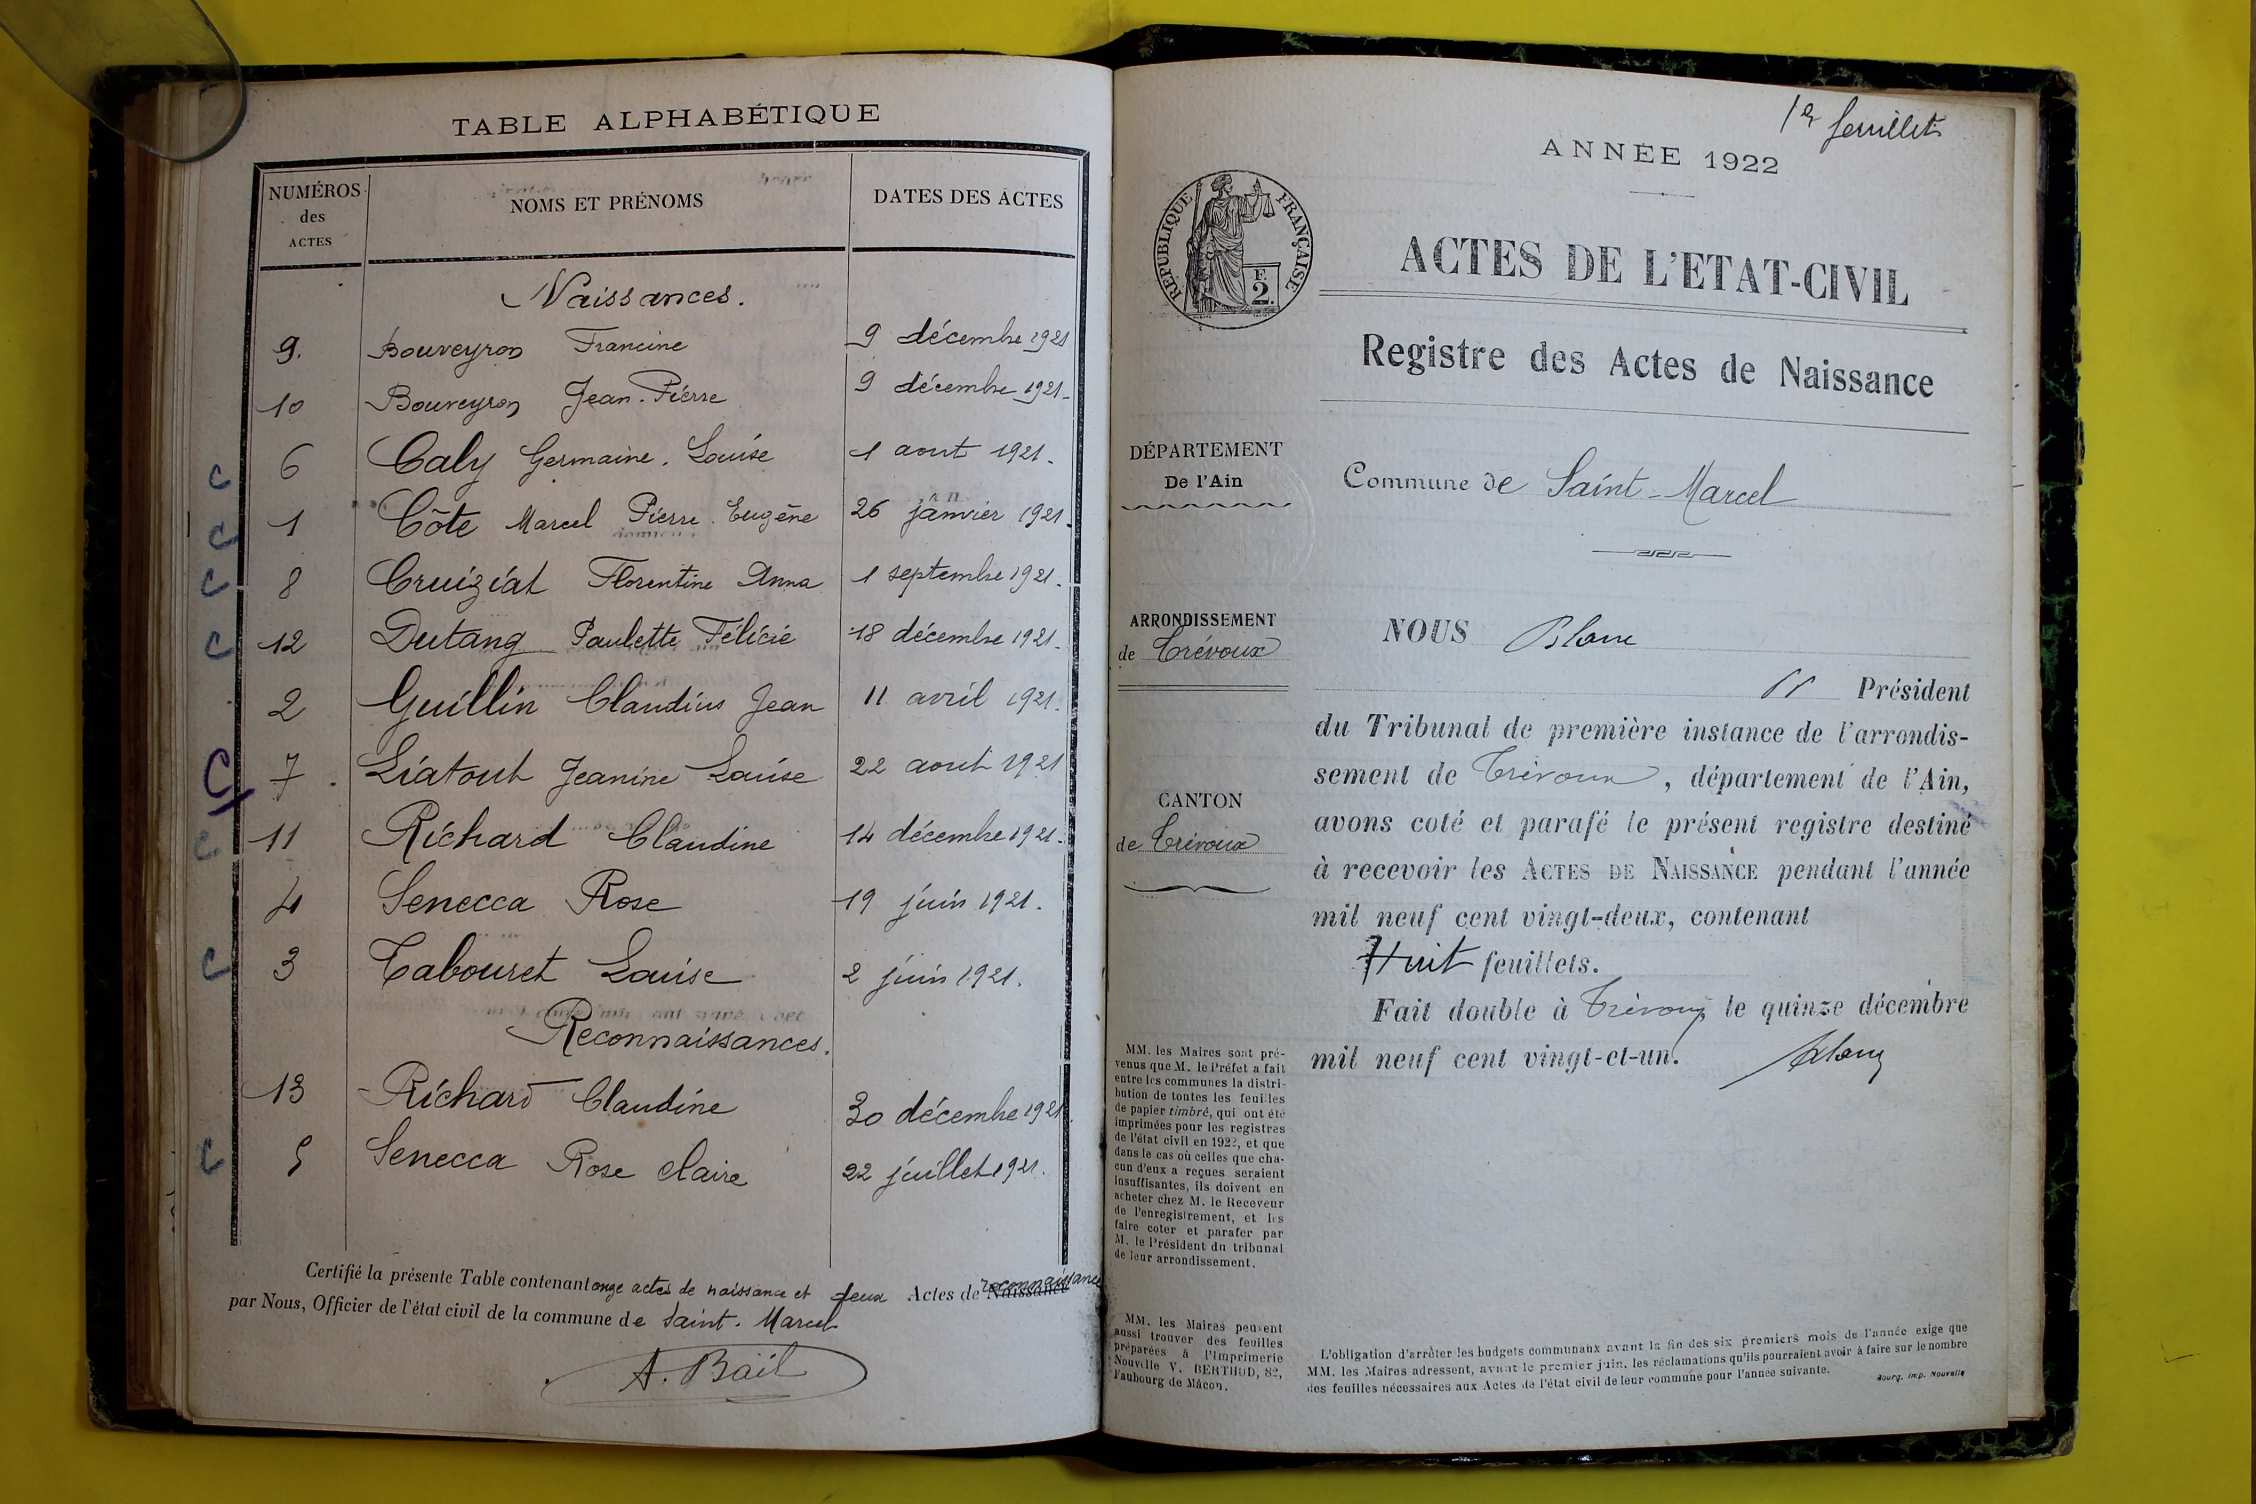 TABLE ALPHABÉTIQUE
NUMÉROS des ACTES NOMS ET PRÉNOMS DATES DES ACTES
Naissances.
9. Bouveyron Francine 9 décembre 1921
10 Bouveyron Jean-Pierre 9 décembre 1921-
C 6 Caly Germaine. Louise 1 aout 1921-
C 1 Côte Marcel Pierre Eugène 26 janvier 1921-
C 8 Cruiziat Florentine Anna 1 septembre 1921.
C 12 Dutang Paulette Félicie 18 décembre 1921-
2 Guillin Claudius Jean 11 avril 1921.
C 7 Liatout Jeanine Louise 22 aout 1921
C 11 Richard Claudine 14 décembre 1921.
4 Senecca Rose 19 juin 1921.
C 3 Tabouret Louise 2 juin 1921.
Reconnaissances.
13 Richard Claudine 30 décembre 1921
C 5 Senecca Rose claire 22 juillet 1921.
Certifié la présente Table contenant onze actes de naissance et deux Actes de Naissance reconnaissance
par Nous, Officier de l'état civil de la commune de Saint. Marcel
A. Baïl
1er feuillet
ANNÉE 1922
RÉPUBLIQUE FRANÇAISE
F.
2.
ACTES DE L'ETAT-CIVIL
Registre des Actes de Naissance
DÉPARTEMENT
De l'Ain
Commune de Saint-Marcel
ARRONDISSEMENT
de Trévoux
CANTON
de Trévoux
NOUS Blanc
Président
du Tribunal de première instance de l'arrondis-
sement de Trévoux, département de l'Ain,
avons coté et parafé le présent registre destiné
à recevoir les ACTES DE NAISSANCE pendant l'année
mil neuf cent vingt-deux, contenant
Huit feuillets.
Fait double à Trévoux le quinze décembre
mil neuf cent vingt-et-un.
Blanc
MM. les Maires sont pré-
venus que M. le Préfet a fait
entre les communes la distri-
bution de toutes les feuilles
de papier timbré, qui ont été
imprimées pour les registres
de l'état civil en 1922, et que
dans le cas où celles que cha-
cun d'eux a reçues seraient
insuffisantes, ils doivent en
acheter chez M. le Receveur
de l'enregistrement, et les
faire coter et parafer par
M. le Président du tribunal
de leur arrondissement.
MM. les Maires peuvent
aussi trouver des feuilles
préparées à l'Imprimerie
Nouvelle V. BERTHOD, 82,
Faubourg de Mâcon.
L'obligation d'arrêter les budgets communaux avant la fin des six premiers mois de l'année exige que
MM. les Maires adressent, avant le premier juin, les réclamations qu'ils pourraient avoir à faire sur le nombre
des feuilles nécessaires aux Actes de l'état civil de leur commune pour l'année suivante.
Bourg. Imp. Nouvelle